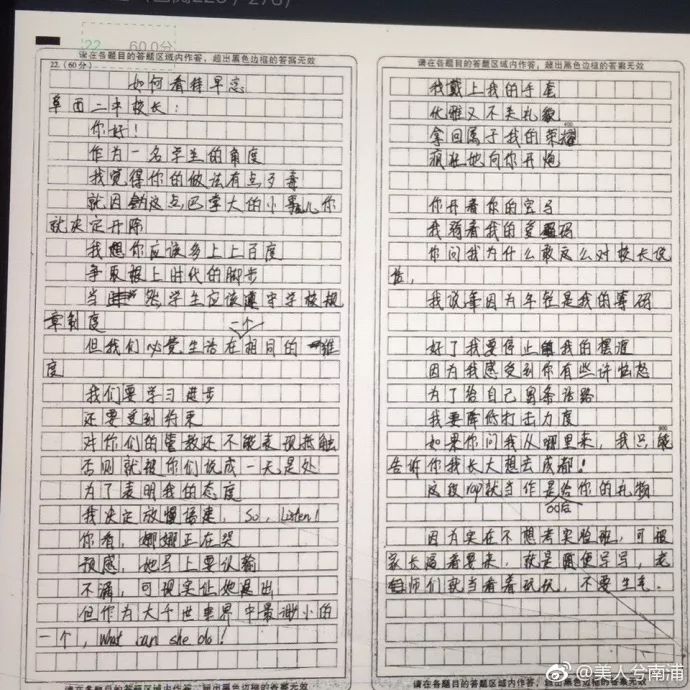 22  60.0分
请在各题目的答题区域内作答，超出黑色边框的答案无效
22.（60分）
如何看待早恋
阜西二中校长：
你好！
作为一名学生的角度
我觉得你的做法有点歹毒
就因为这点巴掌大的小事儿你
就决定开除
我想你应该多上上百度
争取跟上时代的脚步
当然学生应该遵守学校规
章制度
但我们必竟生活在一个相同的维
度
我们要学习进步
还要受到约束
对你们的管教还不能表现抵触
否则就被你们说成一无是处
为了表明我的态度
我决定放慢语速，So，Listen！
你看，娜娜正在哭
预感，她马上要认输
不满，可现实让她退出
但作为大千世界中最渺小的
一个，what can she do！
请在各题目的答题区域内作答，超出黑色边框的答案无效
请在各题目的答题区域内作答，超出黑色边框的答案无效
我戴上我的手套
优雅又不失礼貌
拿回属于我的荣耀
400
疯狂地向你开炮
你开着你的宝马
我骑着我的爱玛
你问我为什么敢这么对校长说
话，
我说年因为年轻是我的筹码
好了我要停止我的摆渡
因为我感受到你有些许愤怒
为了给自己留条活路
我要降低打击力度
800
如果你问我从哪里来，我只能
告诉你我长大想去成都！
这段rap就当作是给你的礼物
00后
因为实在不想考实验班，可被
家长逼着要来，就是随便写写，老
师们就当看着玩玩，不要生气.
请在各题目的答题区域内作答，超出黑色边框的答案无效
@美人兮南浦